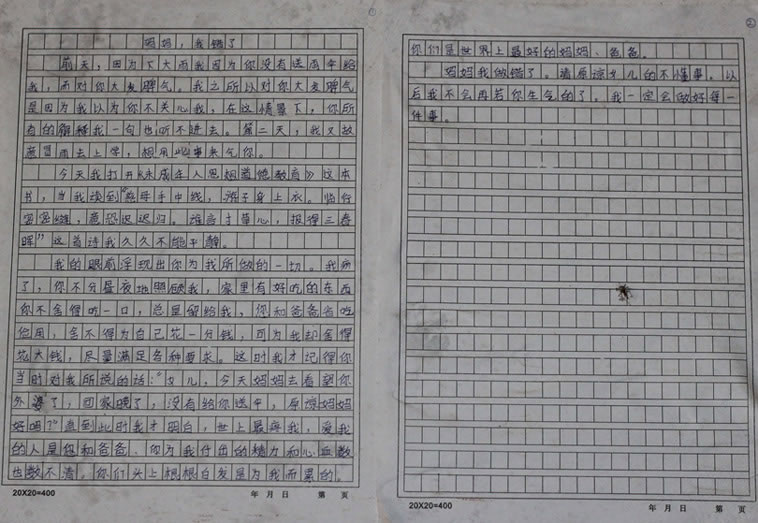 ①
妈妈，我错了
前天，因为下大雨我因为你没有送雨伞给
我，而对你大发脾气。我之所以对你大发脾气
是因为我以为你不关心我，在这情景下，你所
有的解释我一句也听不进去。第二天，我又故
意冒雨去上学，想用此事来气你。
今天我打开《未成年人思想道德教育》这本
书，当我读到“慈母手中线，游子身上衣。临行
密密缝，意恐迟迟归。谁言寸草心，报得三春
晖”这首诗我久久不能平静。
我的眼前浮现出你为我所做的一切。我病
了，你不分昼夜地照顾我，家里有好吃的东西
你不舍得吃一口，总是留给我，你和爸爸省吃
俭用，舍不得为自己花一分钱，可为我却舍得
花大钱，尽量满足各种要求。这时我才记得你
当时对我所说的话：“女儿，今天妈妈去看望你
外婆了，回家晚了，没有给你送伞，原谅妈妈
好吗？”直到此时我才明白，世上最疼我，爱我
的人是你和爸爸、你为我付出的精力和心血数
也数不清。你们头上根根白发是为我而累的。
20X20=400 年 月 日 第 页
②
你们是世界上最好的妈妈、爸爸。
妈妈我做错了。请原谅女儿的不懂事。以
后我不会再若你生气的了。我一定会做好每一
件事。
20X20=400 年 月 日 第 页